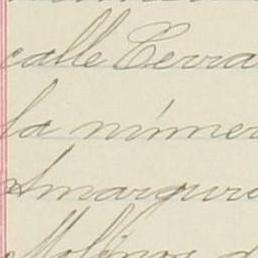 calle Cerra
la númer
Amargure
Molinos d